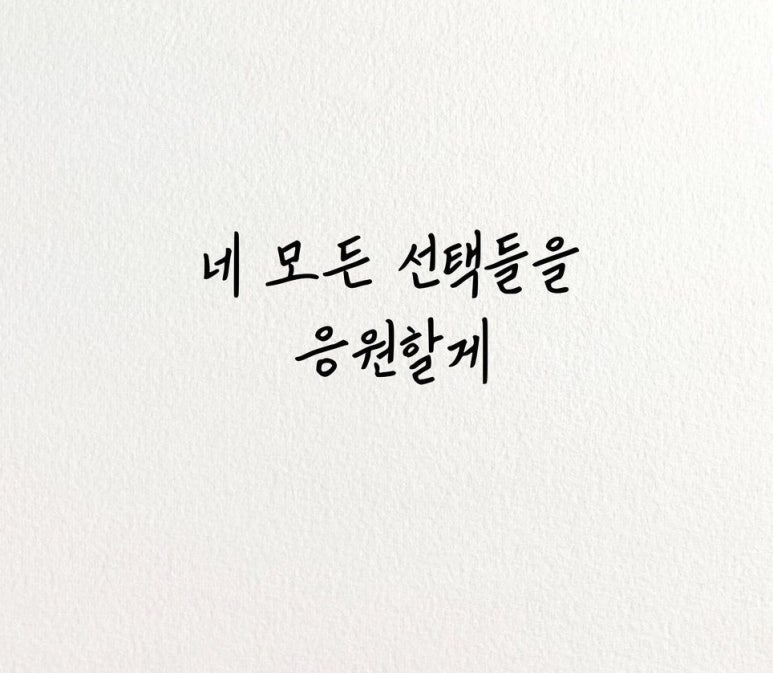 네 모든 선택들을
응원할게